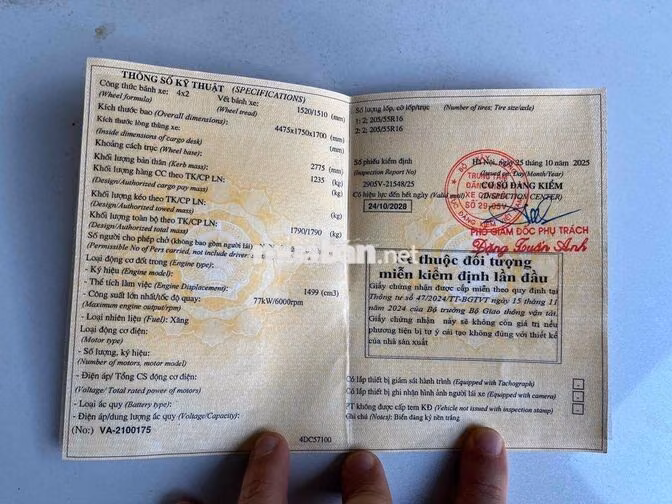 THÔNG SỐ KỸ THUẬT (SPECIFICATIONS)
Công thức bánh xe: 4x2 Vết bánh xe: 1520/1510 (mm)
(Wheel formula) (Wheel tread)
Kích thước bao (Overall dimensions): 4475x1750x1700 (mm)
Kích thước lòng thùng xe: (mm)
(Inside dimensions of cargo desk)
Khoảng cách trục (Wheel base): 2775 (mm)
Khối lượng bản thân (Kerb mass): 1235 (kg)
Khối lượng hàng CC theo TK/CP LN: (kg)
(Design/Authorized cargo pay mass)
Khối lượng kéo theo TK/CP LN:
(Design/Authorized towed mass)
Khối lượng toàn bộ theo TK/CP LN: 1790/1790 (kg)
(Design/Authorized total mass)
Số người cho phép chở (không bao gồm người lái)
(Permissible No of Pers carried, not include driver
Loại động cơ đốt trong (Engine type):
- Ký hiệu (Engine model):
- Thể tích làm việc (Engine Displacement): 1499 (cm3)
- Công suất lớn nhất/tốc độ quay: 77kW/6000rpm
(Maximum engine output/rpm)
- Loại nhiên liệu (Fuel): Xăng
Loại động cơ điện:
(Motor type)
- Số lượng, ký hiệu:
(Number of motors, motor model)
- Điện áp/ Tổng CS động cơ điện:
(Voltage/ Total rated power of motors)
- Loại ắc quy (Battery type):
- Điện áp/dung lượng ắc quy (Voltage/Capacity):
(No:) VA-2100175
4DC57100
Số lượng lốp, cỡ lốp/trục (Number of tires; Tire size/axle)
1: 2; 205/55R16
2: 2; 205/55R16
Số phiếu kiểm định Hà Nội, ngày 25 tháng 10 năm 2025
(Inspection Report No) (Issued on: Day/Month/Year)
2905V-21548/25 CƠ SỞ ĐĂNG KIỂM
Có hiệu lực đến hết ngày (Valid until) (INSPECTION CENTER)
24/10/2028
TRUNG TÂM
ĐĂNG KIỂM
XE CƠ GIỚI
SỐ 29.05V
PHÓ GIÁM ĐỐC PHỤ TRÁCH
Đặng Tuấn Anh
thuộc đối tượng
miễn kiểm định lần đầu
Giấy chứng nhận được cấp miễn theo quy định tại
Thông tư số 47/2024/TT-BGTVT ngày 15 tháng 11
năm 2024 của Bộ trưởng Bộ Giao thông vận tải.
Giấy chứng nhận này sẽ không còn giá trị nếu
phương tiện bị tự ý cải tạo không đúng với thiết kế
của nhà sản xuất
Có lắp thiết bị giám sát hành trình (Equipped with Tachograph)
Có lắp thiết bị ghi nhận hình ảnh người lái xe (Equipped with camera)
PT không được cấp tem KĐ (Vehicle not issued with inspection stamp)
Ghi chú (Notes): Biển đăng ký nền trắng